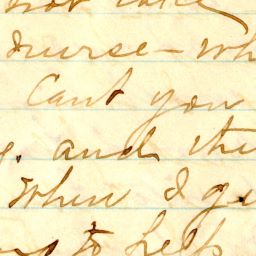 not
nurse - wh
Cant you
and the
When I g
to help